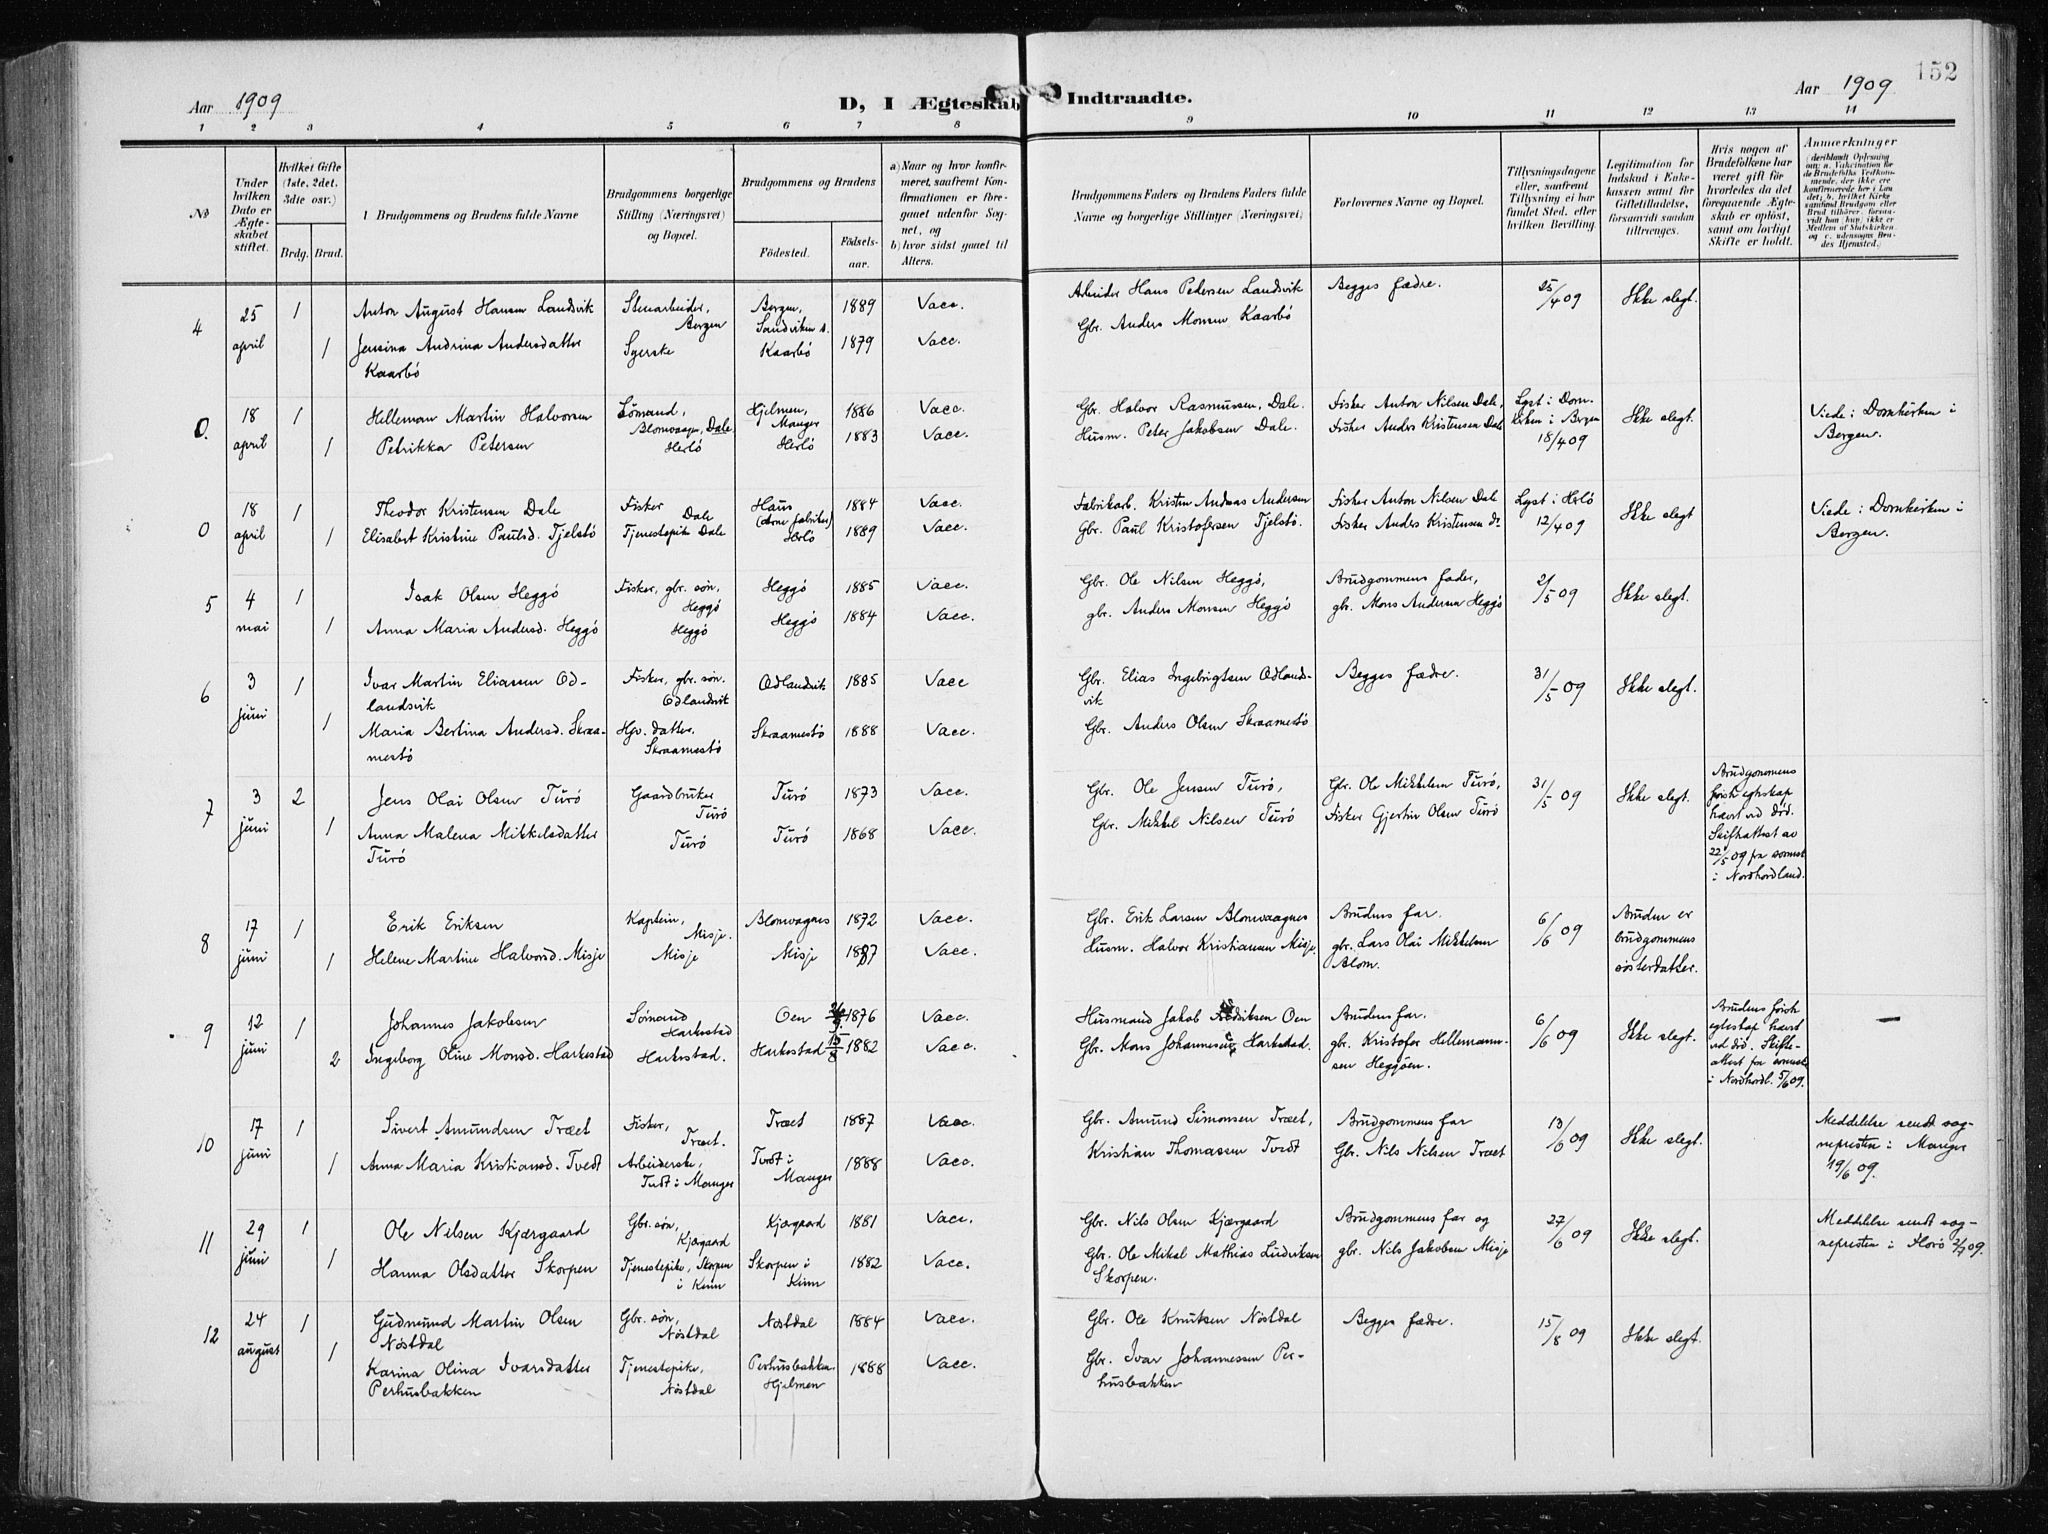 152
Aar 1909
D, I Ægteskab Indtraadte.
Aar 1909
1 2 3 4 5 6 7 8 9 10 11 12 13 14
No
Under hvilken Dato er Ægteskabet stiftet.
Hvilket Gifte (1ste, 2det, 3die osv.)
Brdg. Brud.
Brudgommens og Brudens fulde Navne
Brudgommens borgerlige Stilling (Næringsvei) og Bopæl.
Brudgommens og Brudens
Födested.
Födselsaar.
a) Naar og hvor konfirmeret, saafremt Konfirmationen er foregaaet udenfor Sognet, og
b) hvor sidst gaaet til Alters.
Brudgommens Faders og Brudens Faders fulde Navne og borgerlige Stillinger (Næringsvei)
Forlovernes Navne og Bopæl.
Tillysningsdagene eller, saafremt Tillysning ei har fundet Sted, efter hvilken Bevilling.
Legitimation for Indskud i Enkekassen samt for Giftetilladelse, forsaavidt saadan tiltrænges.
Hvis nogen af Brudefolkene har været gift för hvorledes da det foregaaende Ægteskab er oplöst, samt om lovligt Skifte er holdt.
Anmerkninger
4
25 april
1
Anton August Hansen Landsvik
Stenarbeider, Bergen
Bergen, Sandviken s.
1889
Vacc.
Arbeider Hans Pedersen Landsvik
Begges fædre.
25/4 09
Ikke slegt.
1
Jensina Andrina Andersdatter Kaarbö
Syerske
Kaarbö
1879
Vacc.
Gbr. Anders Monsen Kaarbö
0.
18 april
1
Helleman Martin Halvorsen
Sömand, Blomvaagen, Dale
Hjelmen, Manger
1886
Vacc.
Gbr. Halvor Rasmussen, Dale.
Fisker Anton Nilsen Dale,
Lyst i Domkirken i Bergen 18/4 09
Ikke slegt.
Viede i Domkirken i Bergen.
1
Petrikka Petersen
Herlö
Herlö
1883
Vacc.
Husm. Peter Jakobsen Dale.
Fisker Anders Kristensen Dale
0
18 april
1
Theodor Kristensen Dale
Fisker Dale
Haus (Arne fabriker)
1884
Vacc.
Fabrikarb. Kristen Andreas Andersen
Fisker Anton Nilsen Dale
Lyst i Herlö 12/4 09
Ikke slegt
Viede i Domkirken i Bergen.
1
Elisabet Kristine Paulsd. Tjelstö
Tjenestepike Dale
Herlö
1889
Vacc.
Gbr. Paul Kristofersen Tjelstö.
Fisker Anders Kristensen do
5
4 mai
1
Isak Olsen Heggö
Fisker, gbr. sön, Heggö
Heggö
1885
Vacc.
Gbr. Ole Nilsen Heggö,
Brudgommens fader,
2/5 09
Ikke slegt.
1
Anna Maria Andersd. Heggö
Heggö
Heggö
1884
Vacc.
gbr. Anders Monsen Heggö
gbr. Mons Andersen Heggö
6
3 juni
1
Ivar Martin Eliassen Odlandsvik
Fisker, gbr. sön. Odlandsvik
Odlandsvik
1885
Vacc
Gbr. Elias Ingebrigtsen Odlandsvik
Begges fædre.
31/5 09
Ikke slegt.
1
Maria Bertina Andersd. Skraamestö
Gbr. datter. Skraamestö
Skraamestö
1888
Vacc.
Gbr. Anders Olsen Skraamestö
7
3 juni
2
Jens Olai Olsen Turö
Gaardbruker Turö
Turö
1873
Vacc.
Gbr. Ole Jensen Turö,
Gbr. Ole Mikkelsen Turö,
31/5 09
Ikke slegt.
Brudgommens förste egteskap hævet ved död. Skifteattest av 22/5 09 fra sorensk. i Nordhordland.
1
Anna Malena Mikkelsdatter Turö
Turö
Turö
1868
Vacc.
Gbr. Mikkel Nilsen Turö
Fisker Gjertin Olsen Turö
8
17 juni
1
Erik Eriksen
Kaptein, Misje.
Blomvagnes
1872
Vacc.
Gbr. Erik Larsen Blomvaagnes
Brudens far.
6/6 09
Bruden er brudgommens sösterdatter.
1
Helene Martine Halvorsd. Misje
Misje
Misje
1887
Vacc.
Husm. Halvor Kristiansen Misje.
gbr. Lars Olai Mikkelsen Blom.
9
12 juni
1
Johannes Jakobsen
Sömand Harkestad
Oen
1876
Vacc.
Husmand Jakob Oen
Brudens far.
6/6 09
Ikke slegt.
Brudens förste egteskap hævet ved död. Skifteattest fra sorensk. i Nordhordl. 5/6 09.
—
2
Ingeborg Oline Monsd. Harkestad
Harkestad.
Harkestad
1882
Vacc.
Gbr. Mons Johannesen Harkestad.
gbr. Kristofer Hellemannsen Heggöen.
10
17 juni
1
Sivert Amundsen Træet
Fisker, Træet.
Træet
1887
Vacc.
Gbr. Amund Simonsen Træet,
Brudgommens far
13/6 09
Ikke slegt.
Meddelelse sendt sognepresten i Manger 19/6 09.
1
Anna Maria Kristiansd. Tvedt
Arbeiderske, Tvedt i Manger
Tvedt i Manger
1888
Vacc.
Kristian Thomassen Tvedt
Gbr. Nils Nilsen Træet
11
29 juni
1
Ole Nilsen Kjærgaard
Gbr. sön, Kjærgaard
Kjærgaard
1881
Vacc.
Gbr. Nils Olsen Kjærgaard
Brudgommens far og
27/6 09
Ikke slegt.
Meddelelse sendt sognepresten i Florö 2/7 09.
1
Hanna Olsdatter Skorpen
Tjenestepike, Skorpen i Kinn
Skorpen i Kinn
1882
Vacc.
Gbr. Ole Mikal Mathias Ludviksen Skorpen.
gbr. Nils Jakobsen Misje
12
24 august
1
Gudmund Martin Olsen Nöstdal
Gbr. sön, Nöstdal
Nöstdal
1884
Vacc.
Gbr. Ole Knutsen Nöstdal
Begges fædre.
15/8 09
Ikke slegt.
1
Karina Olina Ivarsdatter Perhusbakken
Tjenestepike, Nöstdal
Perhusbakken Hjelmen
1888
Vacc.
Gbr. Ivar Johannessen Perhusbakken